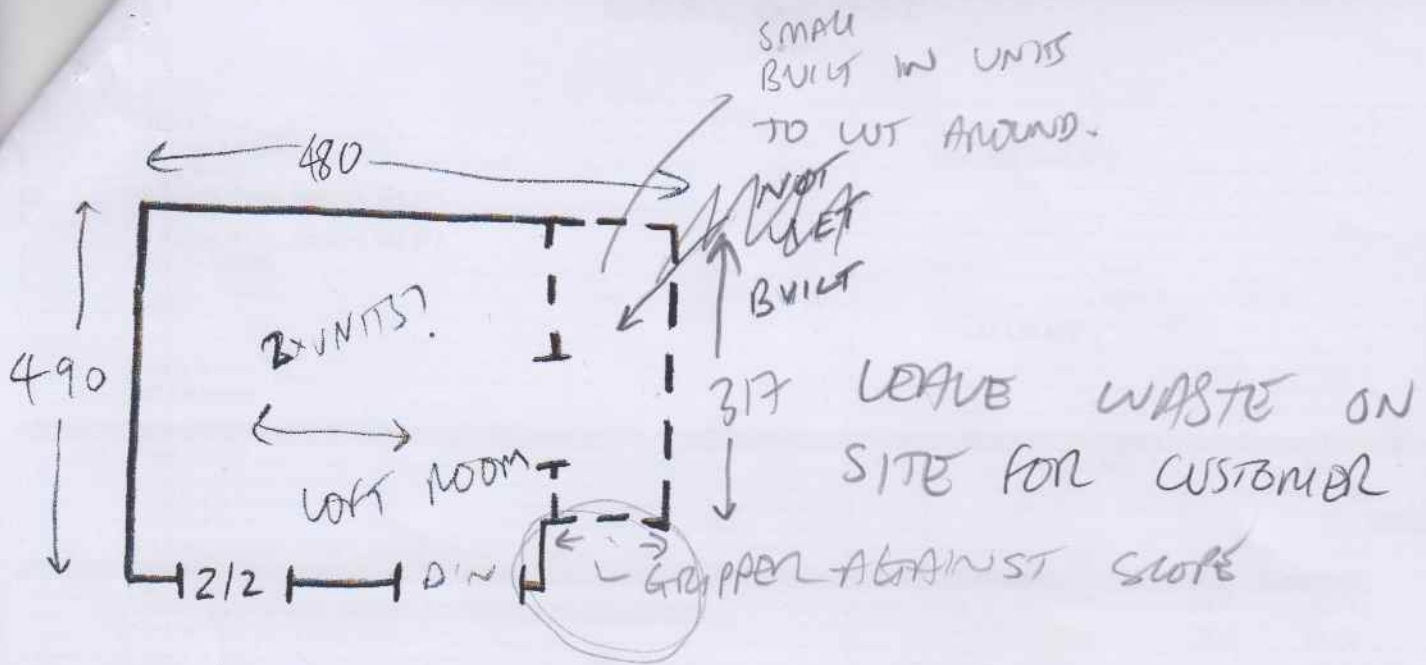 SMALL
BUILT IN UNITS
TO CUT AROUND.
480
NOT
YET
BUILT
490
2xUNITS?
317
LEAVE WASTE ON
SITE FOR CUSTOMER
LOFT ROOM
GRIPPER AGAINST SLOPE
2/2
D'N